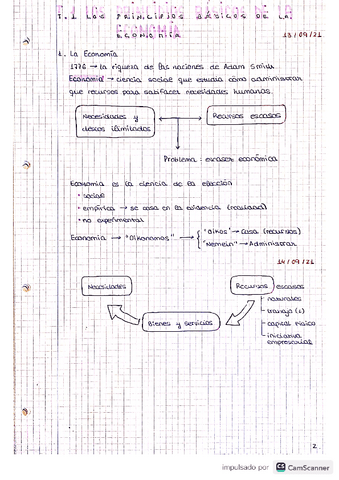 T.1 LOS PRINCIPIOS BÁSICOS DE LA
ECONOMÍA
13/09/21
1. La Economía
1776 → la riqueza de las naciones de Adam Smith
Economía → ciencia social que estudia cómo administrar
que recursos para satisfacer necesidades humanas.
Necesidades y
deseos ilimitados
Recursos escasos
Problema: escasez económica
Economía es la ciencia de la elección
• social
• empírica → se basa en la evidencia (realidad)
• no experimental
Economía → "Oikonomos" → { "Oikos" → Casa (recursos)
"Nemein" → Administrar
14/09/21
Necesidades
Recursos escasos
naturales
trabajo (L)
capital físico
iniciativa
empresarial
Bienes y servicios
2
impulsado por CS CamScanner